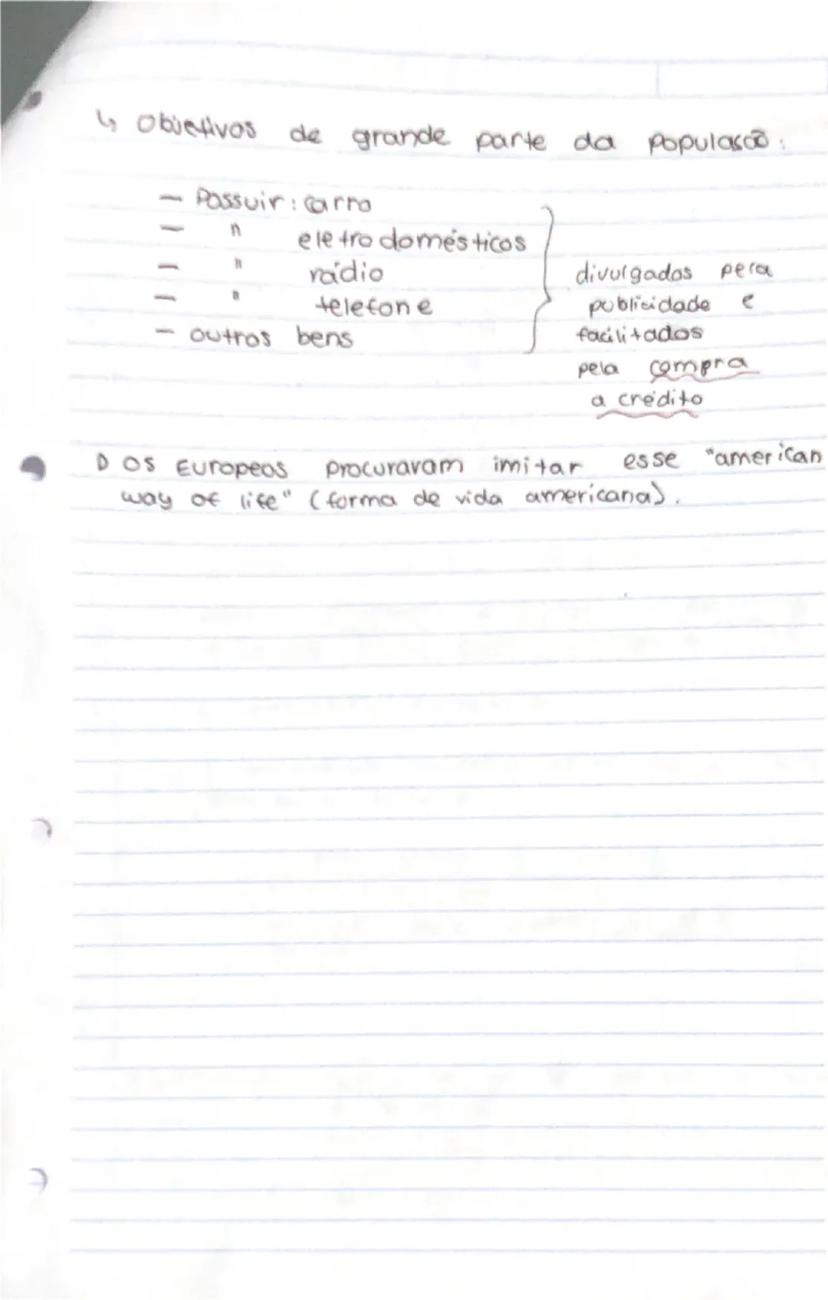 ↳ Objetivos de grande parte da população:
— Possuir: carro
— " eletrodomésticos
— " rádio
— " telefone
— outros bens
divulgados pela
publicidade e
facilitados
pela compra
a crédito
▷ Os Europeos procuravam imitar esse "american
way of life" (forma de vida americana).